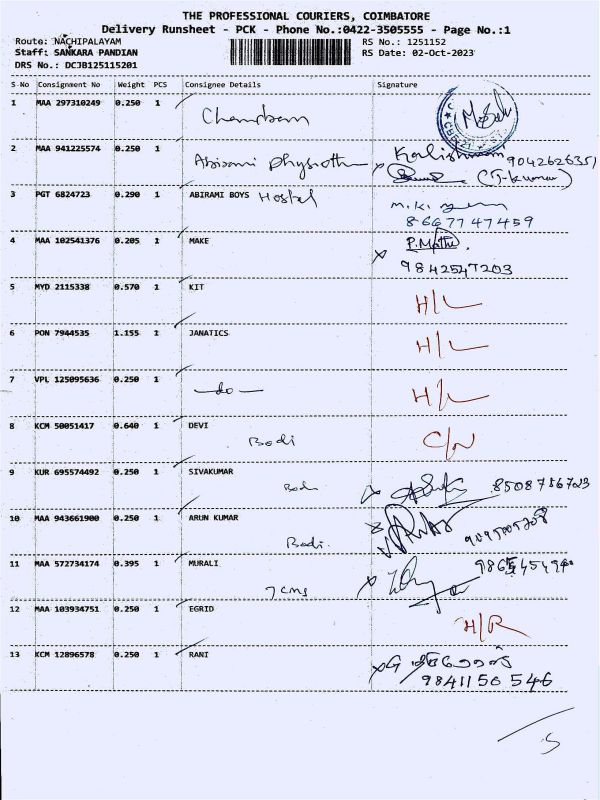 THE PROFESSIONAL COURIERS, COIMBATORE
Delivery Runsheet - PCK - Phone No.:0422-3505555 - Page No.:1
Route: NACHIPALAYAM RS No.: 1251152
Staff: SANKARA PANDIAN RS Date: 02-Oct-2023
DRS No.: DCJB125115201
S No Consignment No Weight PCS Consignee Details Signature
1 MAA 297310249 0.250 1
2 MAA 941225574 0.250 1 Abirami 9042626351
3 PGT 6824723 0.290 1 ABIRAMI BOYS Hostel
8667747459
4 MAA 102541376 0.205 1 MAKE P.Mathi
9842547203
5 MYD 2115338 0.570 1 KIT H/L
6 PON 7944535 1.155 1 JANATICS H/L
7 VPL 125095636 0.250 1 —do— H/L
8 KCM 50051417 0.640 1 DEVI
Bodi C/N
9 KUR 695574492 0.250 1 SIVAKUMAR 8508756723
10 MAA 943661900 0.250 1 ARUN KUMAR
Bodi.
11 MAA 572734174 0.395 1 MURALI
7 cms
12 MAA 103934751 0.250 1 EGRID H/R
13 KCM 12896578 0.250 1 RANI
9841156546